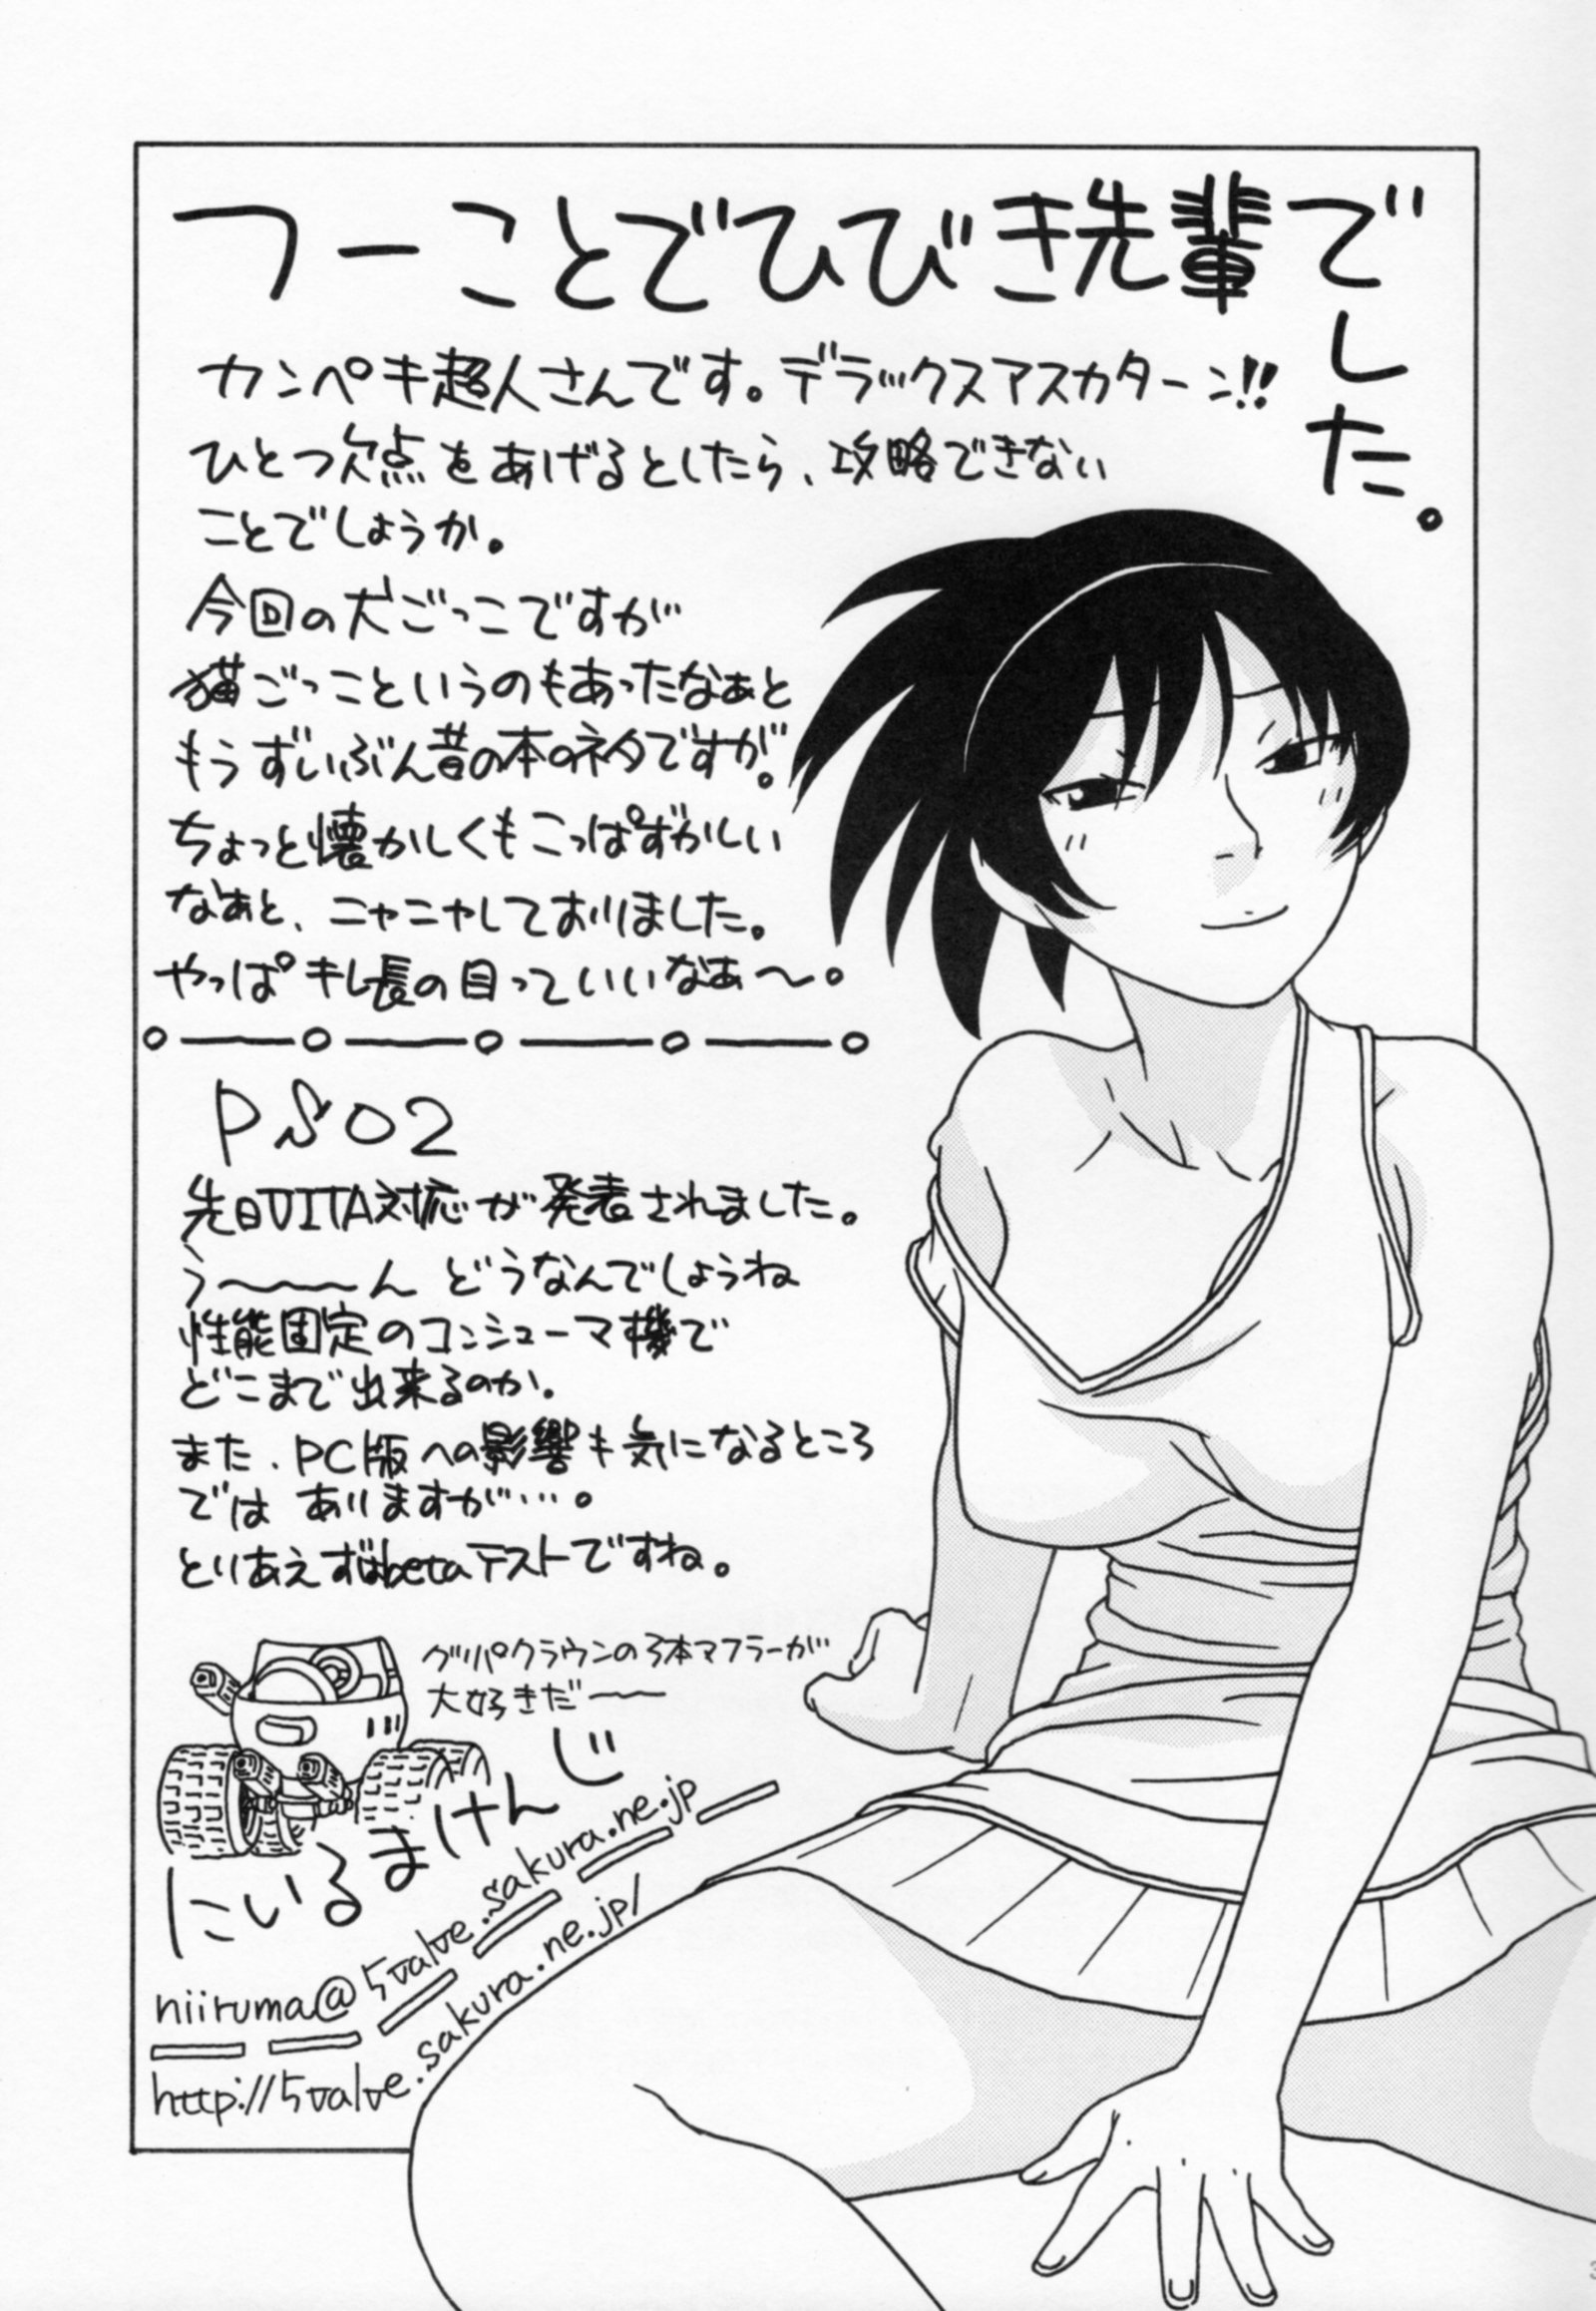 つーことでひびき先輩でした。
カンペキ超人さんです。デラックスアスカターン!!
ひとつ欠点をあげるとしたら、攻略できない
ことでしょうか。
今回の犬ごっこですが
猫ごっこというのもあったなぁと
もうずいぶん昔の本のネタですが。
ちょっと懐かしくもこっぱずかしい
なぁと、ニャニャしておりました。
やっぱキレ長の目っていいなぁ〜。
PSO2
先日VITA対応が発表されました。
う〜〜〜ん どうなんでしょうね
性能固定のコンシューマ機で
どこまで出来るのか。
また、PC版への影響も気になるところ
ではありますが…。
とりあえずはbetaテストですね。
グリパクラウンの3本マフラーが
大好きだ——
にいるまけんじ
niiruma@5valve.sakura.ne.jp
http://5valve.sakura.ne.jp/